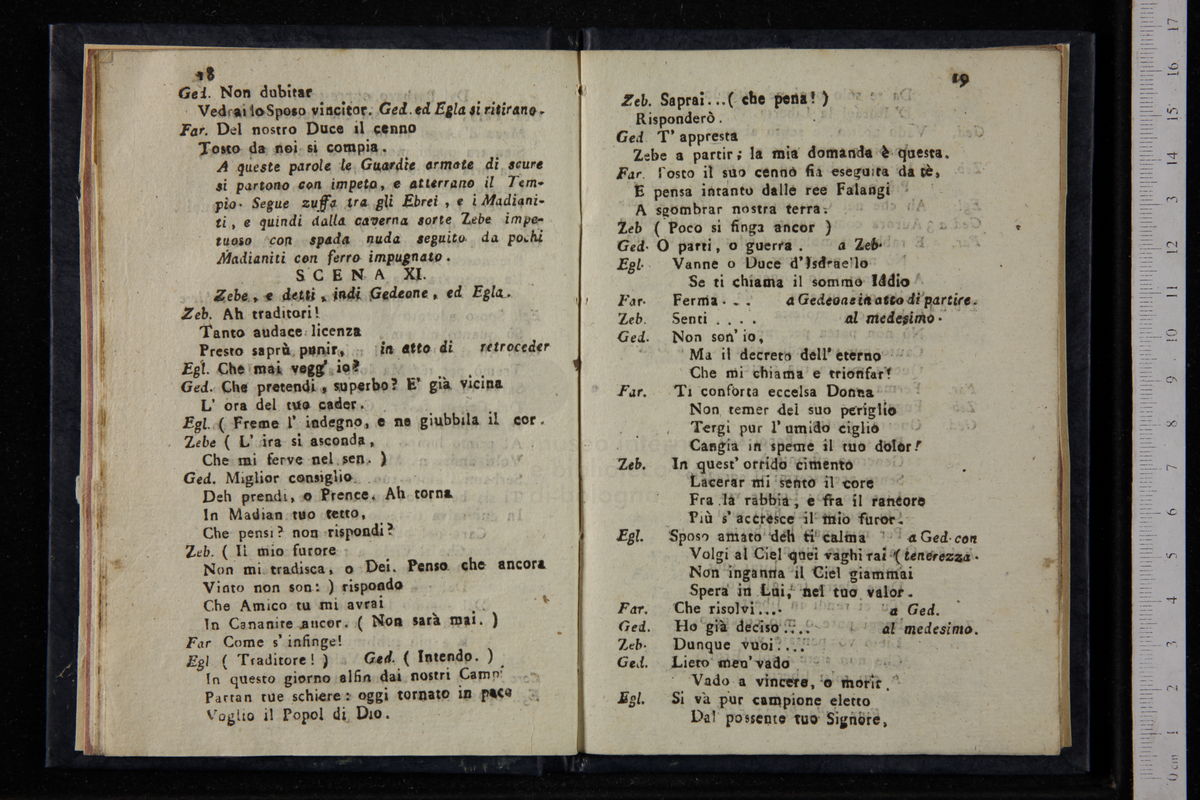 18
Ged. Non dubitar
Vedrai lo Sposo vincitor. Ged. ed Egla si ritirano.
Far. Del nostro Duce il cenno
Tosto da noi si compia.
A queste parole le Guardie armate di scure
si partono con impeto, e atterrano il Tem-
pio. Segue zuffa tra gli Ebrei, e i Madiani-
ti, e quindi dalla caverna sorte Zebe impe-
tuoso con spada nuda seguito da pochi
Madianiti con ferro impugnato.
SCENA XI.
Zebe, e detti, indi Gedeone, ed Egla.
Zeb. Ah traditori!
Tanto audace licenza
Presto saprù punir, in atto di retroceder
Egl. Che mai vegg' io?
Ged. Che pretendi, superbo? E' già vicina
L' ora del tuo cader.
Egl. ( Freme l' indegno, e ne giubbila il cor.
Zebe ( L' ira si asconda,
Che mi ferve nel sen. )
Ged. Miglior consiglio
Deh prendi, o Prence. Ah torna
In Madian tuo tetto,
Che pensi? non rispondi?
Zeb. ( Il mio furore
Non mi tradisca, o Dei. Penso che ancora
Vinto non son: ) rispondo
Che Amico tu mi avrai
In Cananite ancor. ( Non sarà mai. )
Far Come s' infinge!
Egl ( Traditore! ) Ged. ( Intendo. )
In questo giorno alfin dai nostri Campi
Partan tue schiere: oggi tornato in pace
Voglio il Popol di Dio.
19
Zeb. Saprai...( che pena! )
Risponderò.
Ged T' appresta
Zebe a partir; la mia domanda è questa.
Far. Tosto il suo cenno fia eseguita da tè,
E pensa intanto dalle ree Falangi
A sgombrar nostra terra.
Zeb ( Poco si finga ancor )
Ged. O parti, o guerra. a Zeb.
Egl. Vanne o Duce d'Isdraello
Se ti chiama il sommo Iddio
Far. Ferma... a Gedeone in atto di partire.
Zeb. Senti .... al medesimo.
Ged. Non son' io,
Ma il decreto dell' eterno
Che mi chiama e trionfar!
Far. Ti conforta eccelsa Donna
Non temer del suo periglio
Tergi pur l' umido ciglio
Cangia in speme il tuo dolor!
Zeb. In quest' orrido cimento
Lacerar mi sento il core
Fra la rabbia, e fra il rancore
Più s' accresce il mio furor.
Egl. Sposo amato deh ti calma a Ged. con
Volgi al Ciel quei vaghi rai ( tenerezza.
Non inganna il Ciel giammai
Spera in Lui, nel tuo valor.
Far. Che risolvi.... a Ged.
Ged. Ho già deciso .... al medesimo.
Zeb. Dunque vuoi....
Ged. Lieto men' vado
Vado a vincere, o morir.
Egl. Si va pur campione eletto
Dal possente tuo Signore,